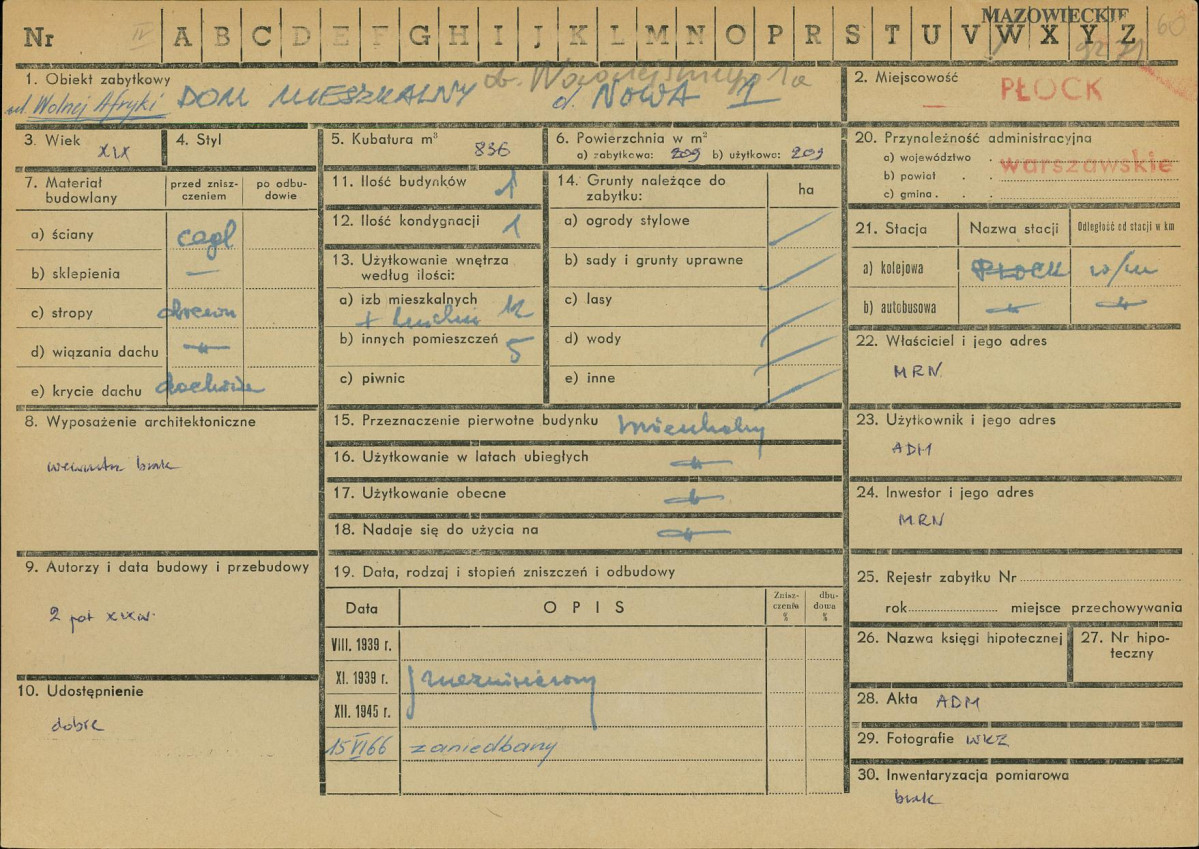 MAZOWIECKIE
Nr IV A B C D E F G H I J K L M N O P R S T U V W X Y Z 60
1. Obiekt zabytkowy
ul. Wolnej Afryki DOM MIESZKALNY d. NOWA 1 1a
2. Miejscowość
PŁOCK
3. Wiek XIX
4. Styl
5. Kubatura m³ 836
6. Powierzchnia w m²
a) zabytkowa: 209 b) użytkowa: 209
20. Przynależność administracyjna
a) województwo warszawskie
b) powiat
c) gmina
7. Materiał budowlany
przed zniszczeniem
po odbudowie
a) ściany cegł
b) sklepienia —
c) stropy drewn
d) wiązania dachu —"—
e) krycie dachu dachówka
11. Ilość budynków 1
12. Ilość kondygnacji 1
13. Użytkowanie wnętrza według ilości:
a) izb mieszkalnych 12
+ kuchni
b) innych pomieszczeń 5
c) piwnic
14. Grunty należące do zabytku:
ha
a) ogrody stylowe
b) sady i grunty uprawne
c) lasy
d) wody
e) inne
21. Stacja
Nazwa stacji
Odległość od stacji w km
a) kolejowa PŁOCK w/m
b) autobusowa —"— —"—
22. Właściciel i jego adres
MRN
8. Wyposażenie architektoniczne
wewnątrz brak
15. Przeznaczenie pierwotne budynku mieszkalny
16. Użytkowanie w latach ubiegłych —"—
17. Użytkowanie obecne —"—
18. Nadaje się do użycia na —"—
23. Użytkownik i jego adres
ADM
24. Inwestor i jego adres
MRN
9. Autorzy i data budowy i przebudowy
2 poł XIX w.
10. Udostępnienie
dobre
19. Data, rodzaj i stopień zniszczeń i odbudowy
Data
OPIS
Zniszczenia %
dbudowa %
VIII. 1939 r.
XI. 1939 r. niezniszczony
XII. 1945 r.
15 VI 66 zaniedbany
25. Rejestr zabytku Nr
rok miejsce przechowywania
26. Nazwa księgi hipotecznej
27. Nr hipoteczny
28. Akta ADM
29. Fotografie WKZ
30. Inwentaryzacja pomiarowa
brak